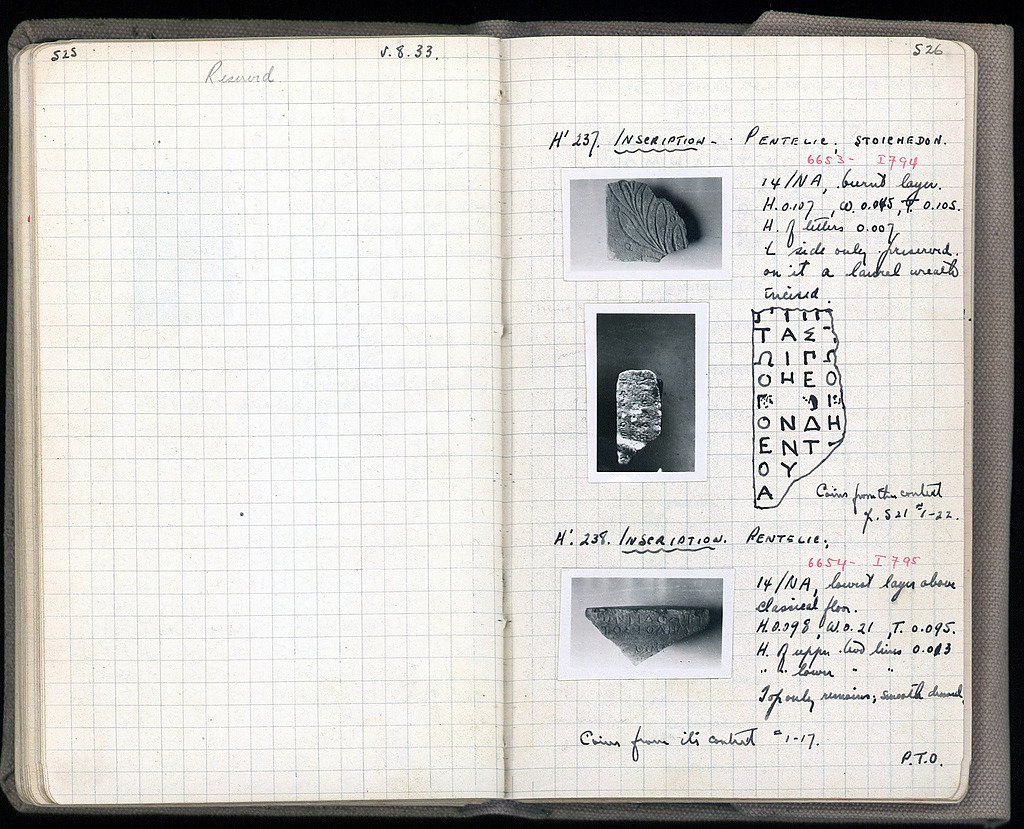 525
V. 8. 33.
Reserved
526
H' 237. INSCRIPTION - PENTELIC, STOICHEDON.
6653 - I 794
14/NA, burnt layer.
H. 0.107, W. 0.045, T. 0.105.
H. of letters 0.007
L side only preserved.
on it a laurel wreath
incised.
Τ Α Σ
Ω Ι Γ
Ο Η Ε Ο
Ο Ν Δ Η
Ε Ν Τ
Ο Υ
Α
Coins from this context
cf. S21 #1-22.
H'. 238. INSCRIPTION. PENTELIC,
6654 - I 795
14/NA, lowest layer above
classical floor.
H. 0.098, W. 0.21, T. 0.095.
H. of upper two lines 0.013
" " lower " "
Top only remains; smooth dressed,
Coins from its context #1-17.
P.T.O.